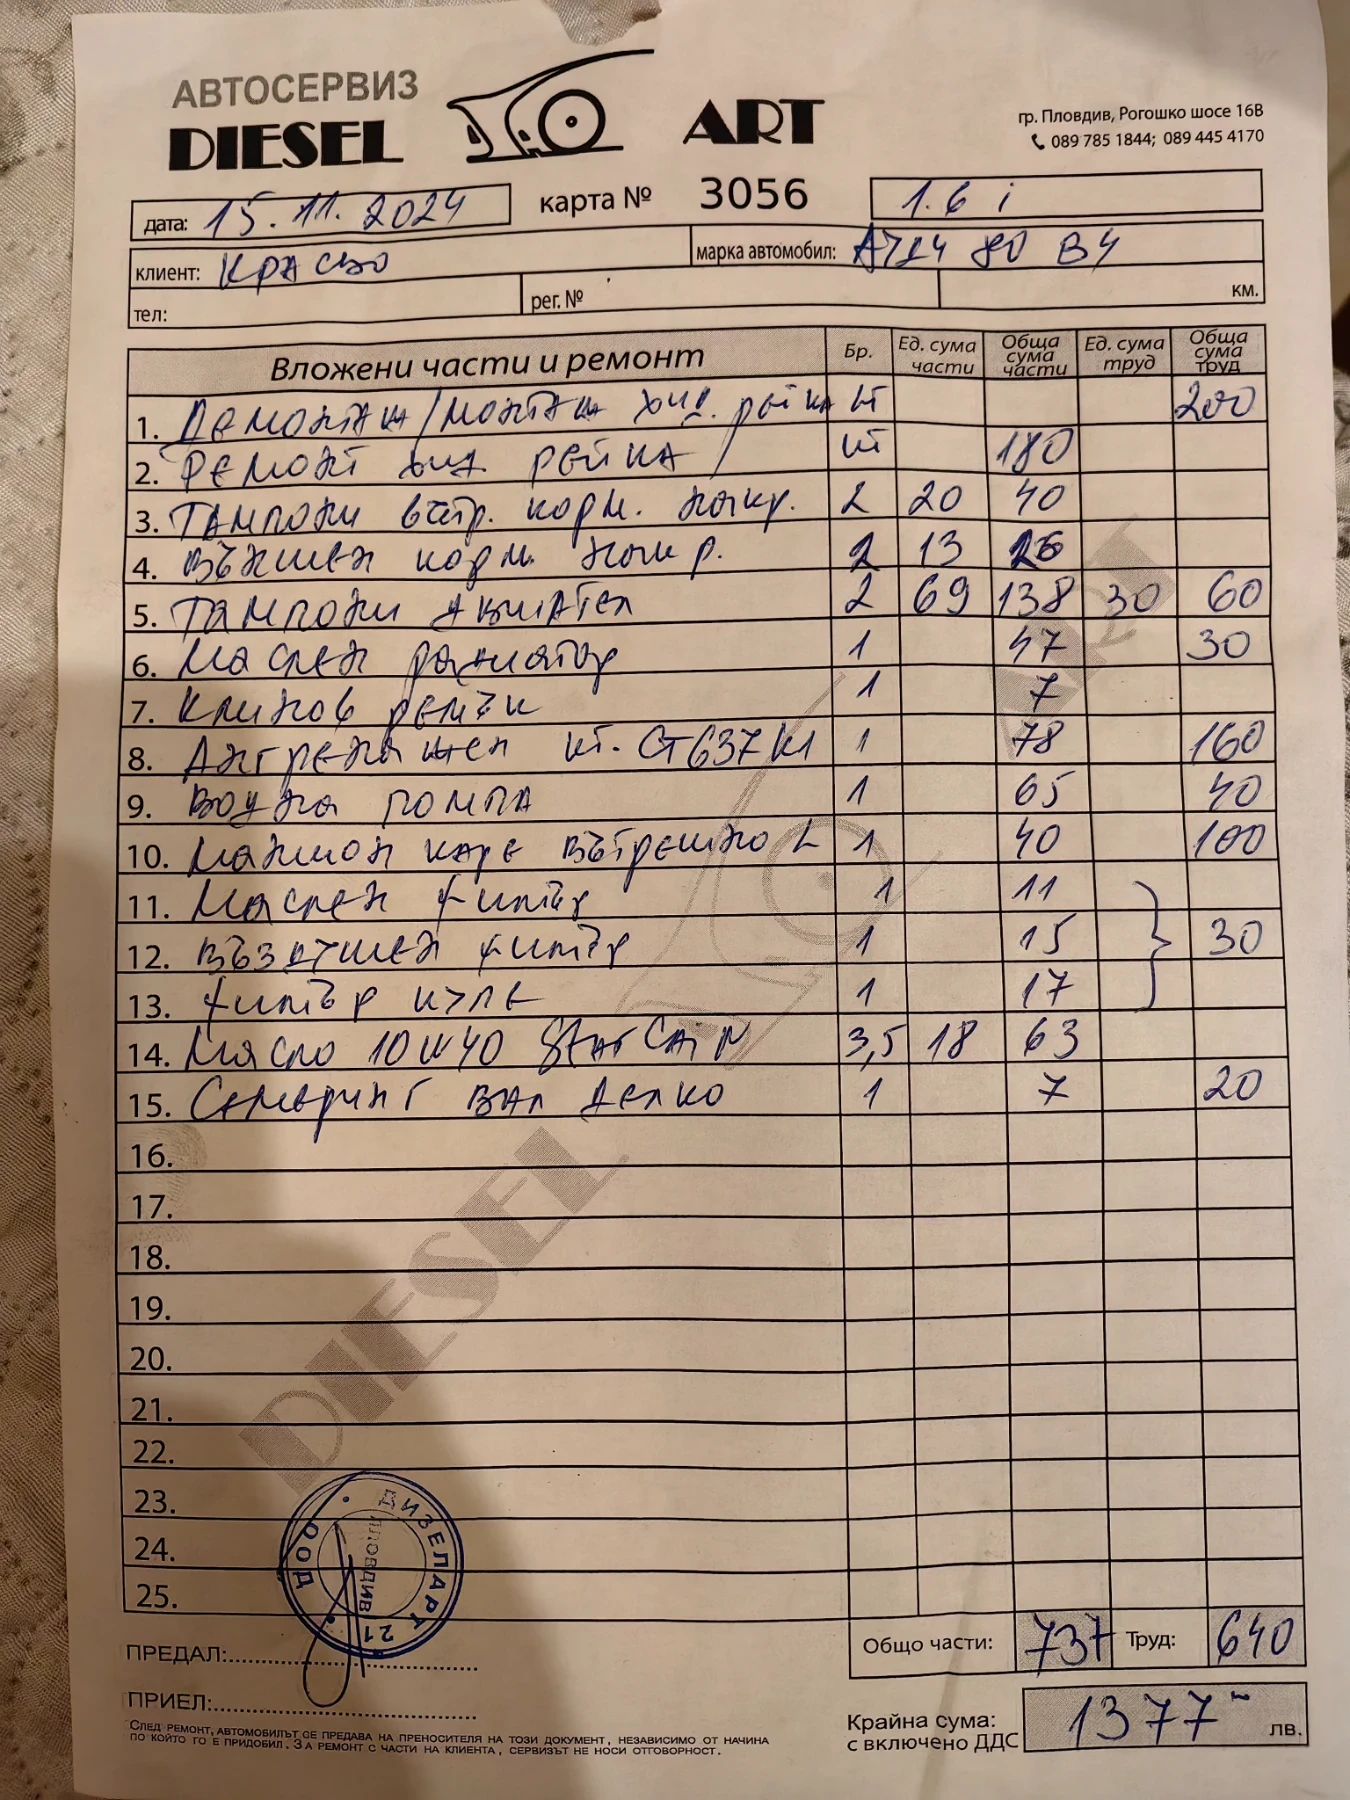 АВТОСЕРВИЗ
DIESEL ART
гр. Пловдив, Рогошко шосе 16В
089 785 1844; 089 445 4170
дата: 15.11.2024 карта № 3056 1.6 i
клиент: Красьо марка автомобил: АУДИ 80 B4
тел: рег. № км.
Вложени части и ремонт Бр. Ед. сума части Обща сума части Ед. сума труд Обща сума труд
1. Демонтаж/монтаж хид. рейка кт 200
2. Ремонт хид. рейка / кт 180
3. Тампони вътр. корм. накр. 2 20 40
4. Външен корм. накр. 2 13 26
5. Тампони двигател 2 69 138 30 60
6. Маслен радиатор 1 47 30
7. Клинов ремък 1 7
8. Ангренажен кт. CT637K1 1 78 160
9. Водна помпа 1 65 40
10. Маншон каре вътрешно L 1 40 100
11. Маслен филтър 1 11
12. Въздушен филтър 1 15 30
13. Филтър купе 1 17
14. Масло 10W40 3,5 18 63
15. Семеринг вал делко 1 7 20
16.
17.
18.
19.
20.
21.
22.
23.
24.
25.
ДИЗЕЛАРТ 21 ООД
ПЛОВДИВ
Общо части: 737 Труд: 640
ПРЕДАЛ:
ПРИЕЛ:
Крайна сума: с включено ДДС 1377 лв.
СЛЕД РЕМОНТ, АВТОМОБИЛЪТ СЕ ПРЕДАВА НА ПРЕНОСИТЕЛЯ НА ТОЗИ ДОКУМЕНТ, НЕЗАВИСИМО ОТ НАЧИНА
ПО КОЙТО ГО Е ПРИДОБИЛ. ЗА РЕМОНТ С ЧАСТИ НА КЛИЕНТА, СЕРВИЗЪТ НЕ НОСИ ОТГОВОРНОСТ.